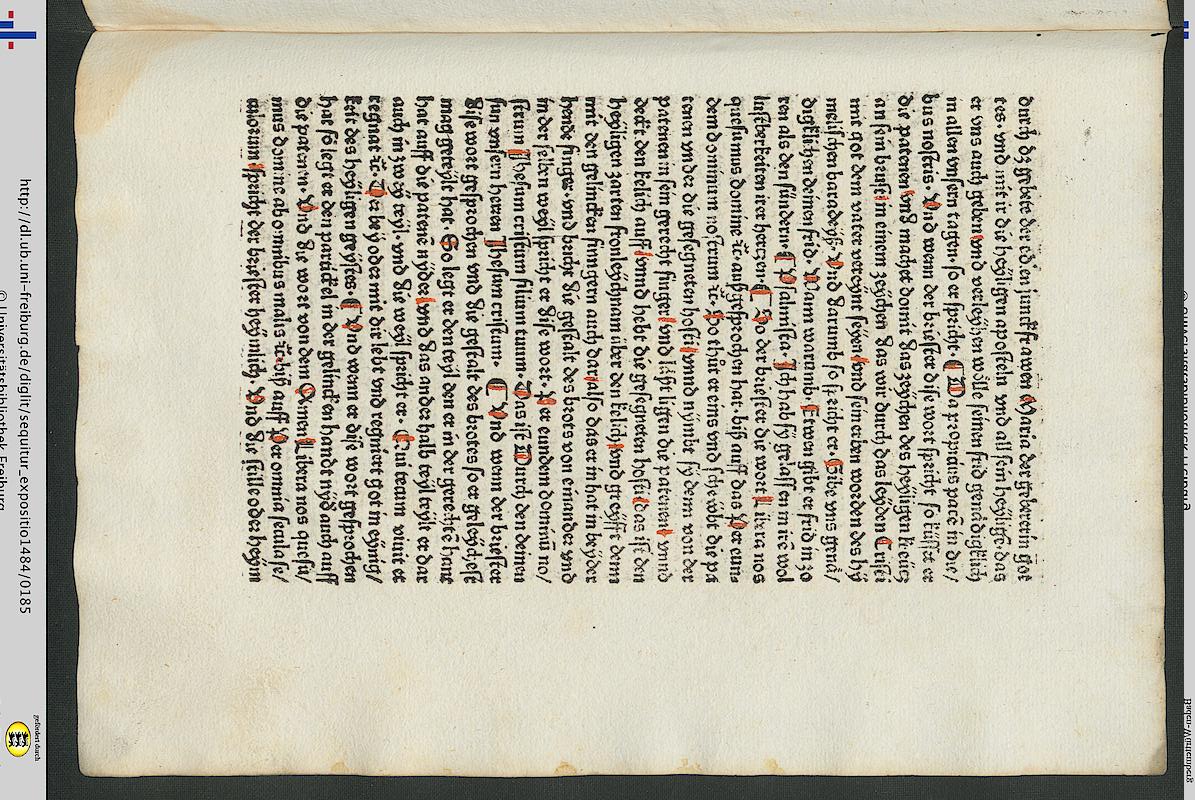 durch dz gebete der iden junckfrawen Maria der gebererin got
tes. vnd mit ir die heyligen aposteln vnd all sein heylige. das
er vns auch geben vnd verleyhen wölle seinen frid genädigklich
in allen vnsern tagen. so er spricht. Da propicius pacē in die/
bus nostris. Vnd wenn der briester dise wort spricht so küsset er
die patenen vnd machet domit das zeychen des heyligen kreücz
an sein brust in einem zeychen das wir durch das leyden Cristi
mit got dem vater vereynt seyen vnd sein erben worden des hy
melischen baradeyß. Vnd darumb so spricht er. Gibe vns genä/
digklichen deinen frid. Wann warumb. Etwen gibt er frid in zo
ren als den sündern. Psalmista. Ich hab sy gelassen in irē wol
lustberkeiten irer hertzen. So der briester die wort Libera nos
quesumus domine ꝛc. außgesprochen hat. biß auff das Per eun/
dem dominum nostrum ꝛc. So thůt er eins vnd scheübt die pa
tenen vnder die gesegneten hosti vnnd nymbt sy denn von der
patenen in sein gerecht finger vnd läßt ligen die patenen vnnd
deckt den kelich auff vnnd hebt die gesegneten hosti das ist den
heyligen zarten fronleychnam über den kelich vnd greyfft denn
mit den gelincken fingern auch dar also das er in hat in beyder
hende finger vnd bricht die gestalt des brots von einander vnd
in der selben weyl spricht er dise wort. Per eundem dominū no/
strum Jhesum cristum filium tuum. Das ist Durch den deinen
sun vnsern herren Jhesum cristum. Vnd wenn der briester
dise wort gesprochen vnd die gestalt des brotes so er geleychest
mag geteylt hat. So legt er den teyl den er in der gerechtē hant
hat auff die patenē nyder vnd das ander halb teyl teylt er dar
auch in zwey teyl. vnd die weyl spricht er. Qui tecum viuit et
regnat ꝛc. Der bey oder mit dir lebt vnd regniert got in eynig/
keit des heyligen geystes. Vnd wenn er dise wort gesprochen
hat so legt er den partickel in der gelincken handt nyd auch auff
die patenen. Vnd die wort von dem Amen Libera nos quesu/
mus domine ab omnibus malis ꝛc. biß auff Per omnia secula se/
culorum spricht der briester heymlich. Vnd die stille oder heym
http://dl.ub.uni-freiburg.de/diglit/sequitur_expositio1484/0185
© Universitätsbibliothek Freiburg
gefördert durch